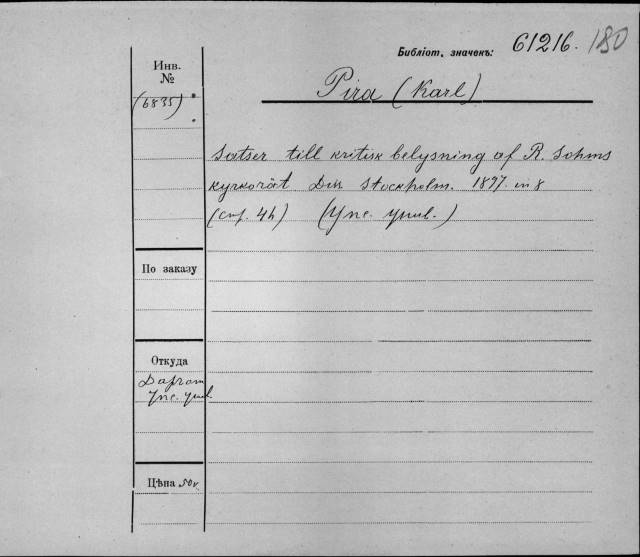 Библіот. значекъ: 61216. 180
Инв.
№
(6835)
Pira (Karl)
Satser till kritisk belysning af R. Sohms
kyrkorät Diss Stockholm. 1897. in 8
(стр. 44) (Упс. унив.)
По заказу
Откуда
Даром
Упс. унив
Цѣна 50